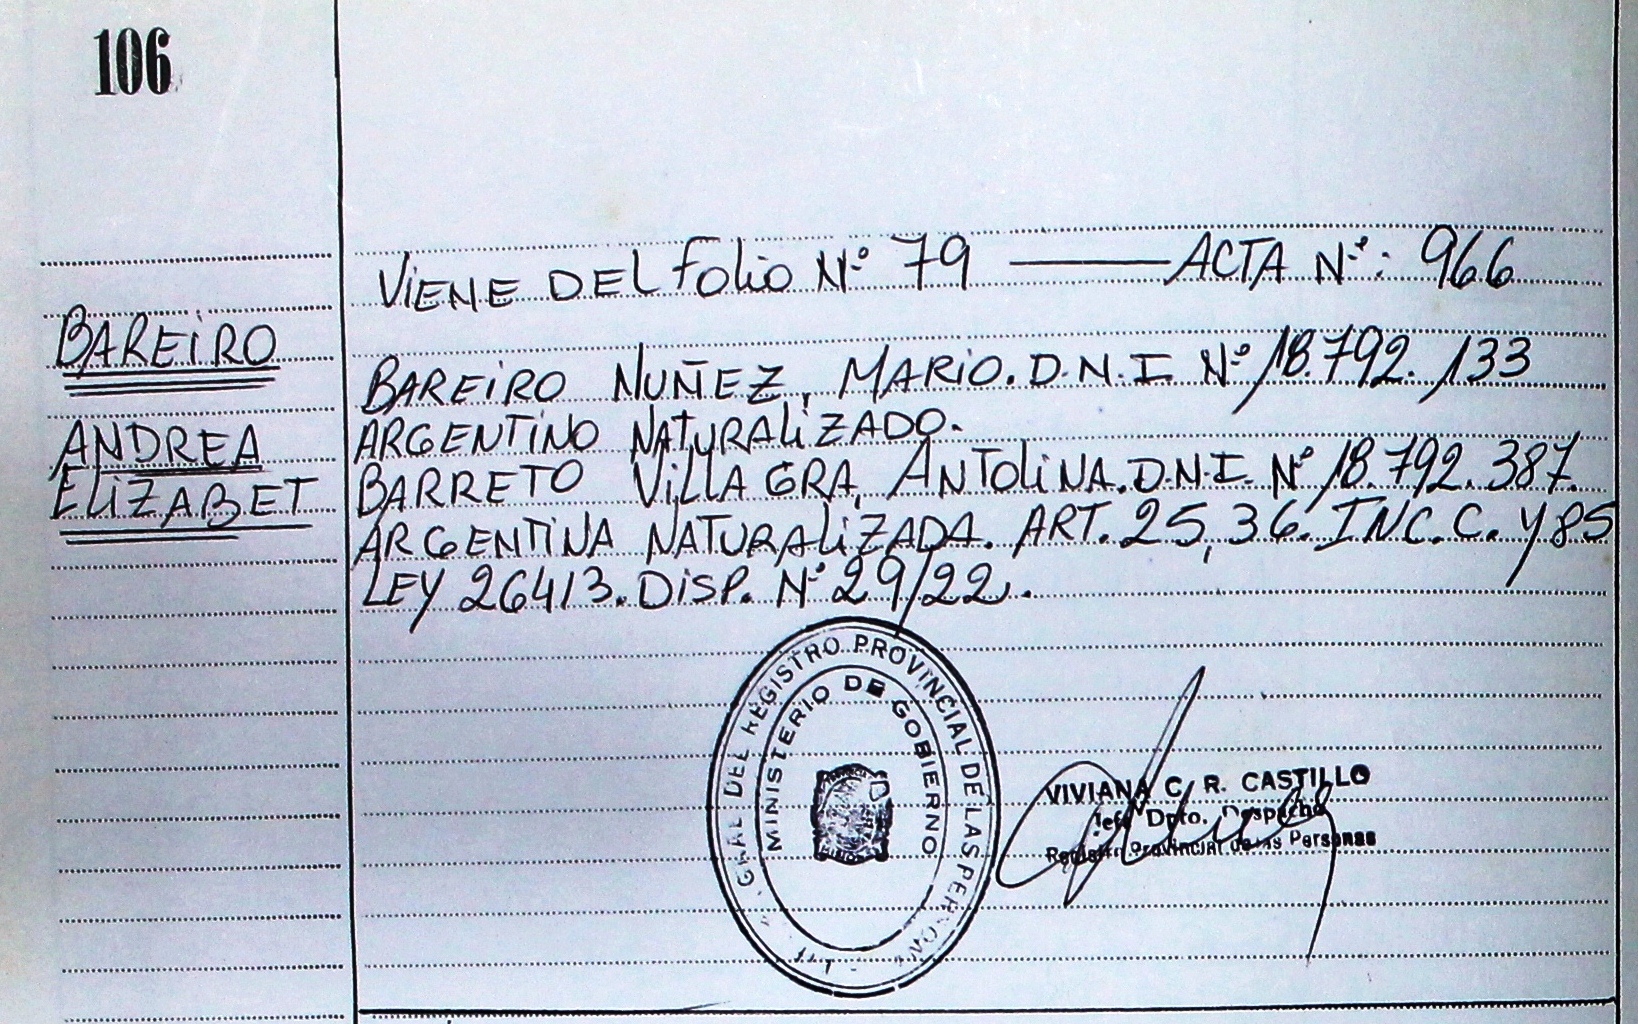 106
VIENE DEL Folio Nº 79 — ACTA Nº: 966
BAREIRO
BAREIRO NUÑEZ, MARIO. D.N.I. Nº 18.792.133
ARGENTINO NATURALIZADO.
ANDREA
ELIZABET
BARRETO VILLAGRA, ANTOLINA. D.N.I. Nº 18.792.387.
ARGENTINA NATURALIZADA. ART. 25, 36. INC. C. Y 85
LEY 26413. DISP. Nº 29/22.
GRAL DEL REGISTRO PROVINCIAL DE LAS PERSONAS
MINISTERIO DE GOBIERNO
VIVIANA C. R. CASTILLO
Jefe Dpto. Despacho
Registro Provincial de las Personas